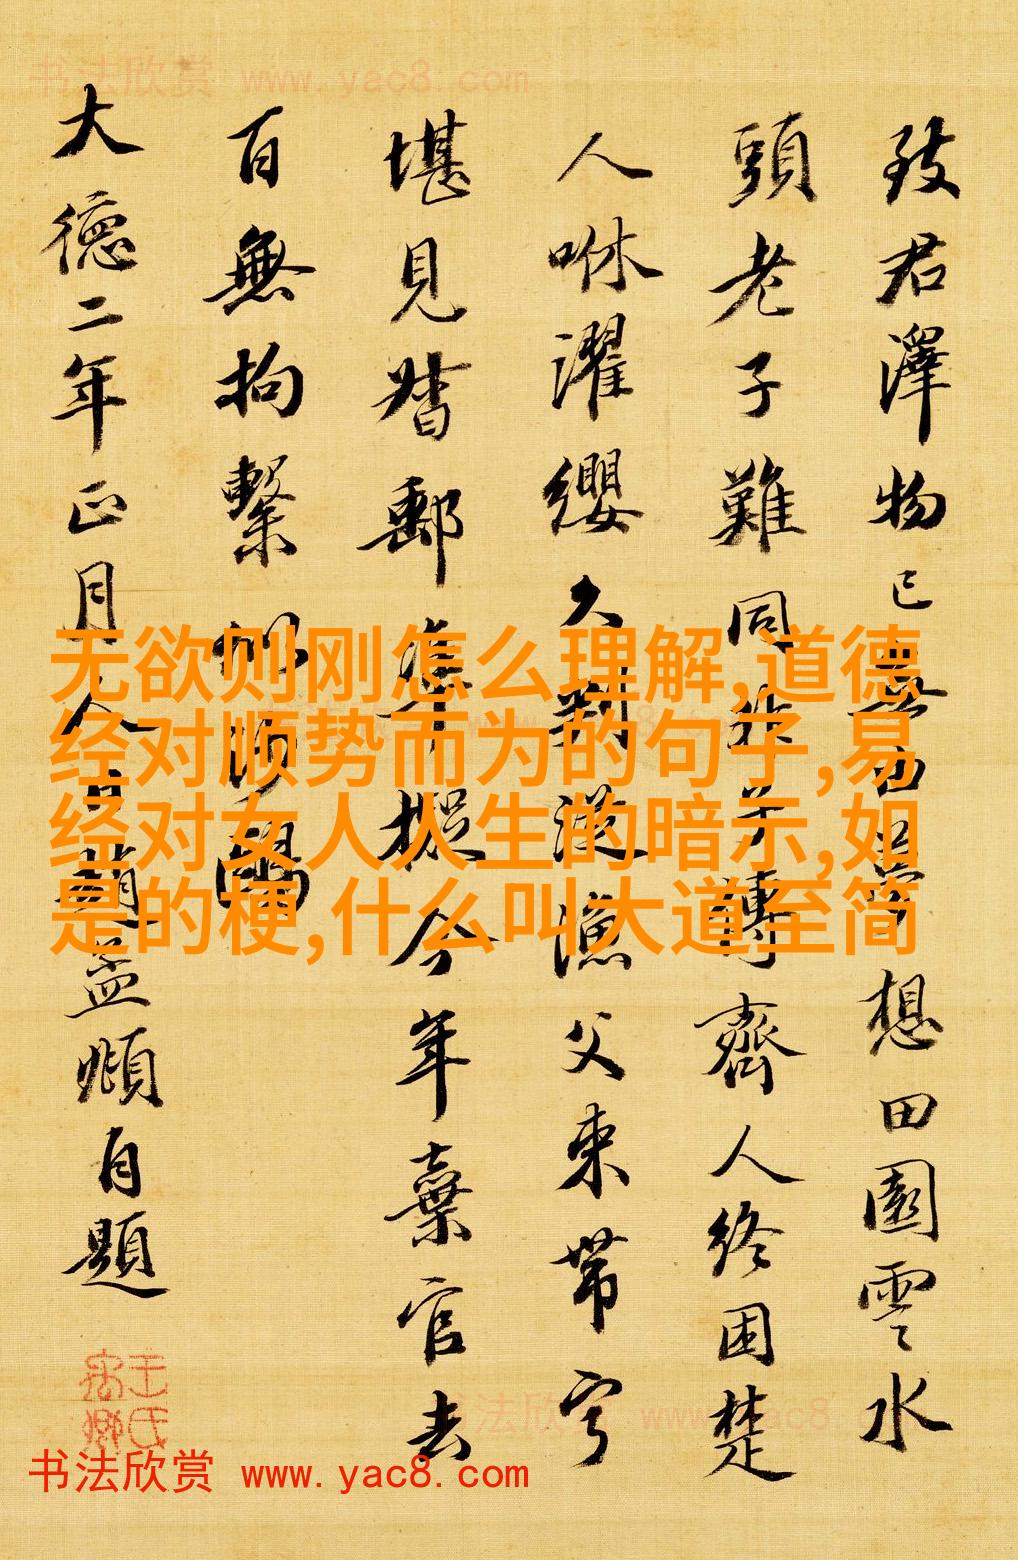 书法欣赏 www.yac8.com
致君澤物已無由夢想田園雲水
頭老子難同非子傳齊人終困楚
人咻濯纓久判從漁父束帶寧
堪見督郵準擬今年棄官去
百無拘繫似沙鷗
大德二年正月人日趙孟頫自題
无欲则刚怎么理解,道德
经对顺势而为的句子,易
经对女人人生的暗示,如
是的梗,什么叫大道至简
书法欣赏 www.yac8.com
书法欣赏 www.yac8.com